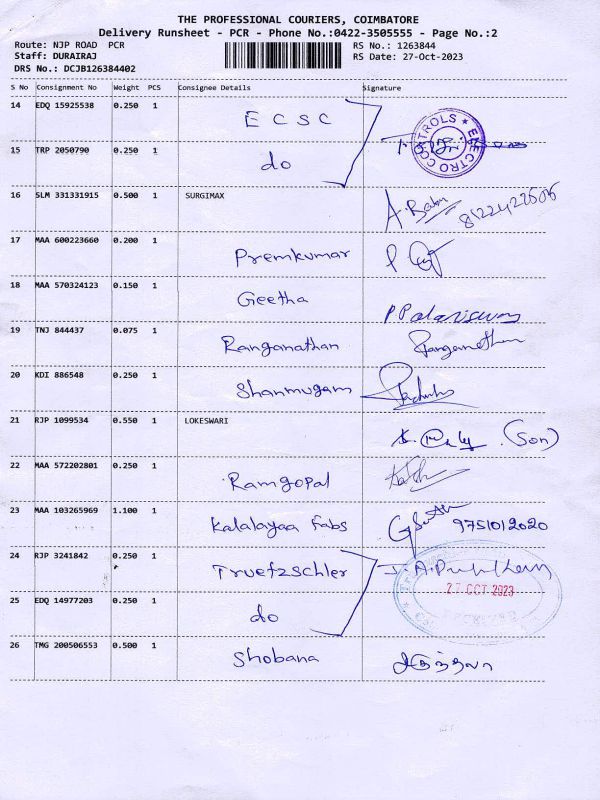 THE PROFESSIONAL COURIERS, COIMBATORE
Delivery Runsheet - PCR - Phone No.:0422-3505555 - Page No.:2
Route: NJP ROAD PCR RS No.: 1263844
Staff: DURAIRAJ RS Date: 27-Oct-2023
DRS No.: DCJB126384402
S No Consignment No Weight PCS Consignee Details Signature
14 EDQ 15925538 0.250 1 ECSC
CONTROLS ★ ELECTRO
15 TRP 2050790 0.250 1 do
16 SLM 331331915 0.500 1 SURGIMAX A. Babu
17 MAA 600223660 0.200 1 Premkumar
18 MAA 570324123 0.150 1 Geetha P Palaniswamy
19 TNJ 844437 0.075 1 Ranganathan Ranganathan
20 KDI 886548 0.250 1 Shanmugam
21 RJP 1099534 0.550 1 LOKESWARI (Son)
22 MAA 572202801 0.250 1 Ramgopal
23 MAA 103265969 1.100 1 Kalalayaa fabs 9751012020
24 RJP 3241842 0.250 1 Truetzschler
27 OCT 2023
25 EDQ 14977203 0.250 1 do
26 TMG 200506553 0.500 1 Shobana